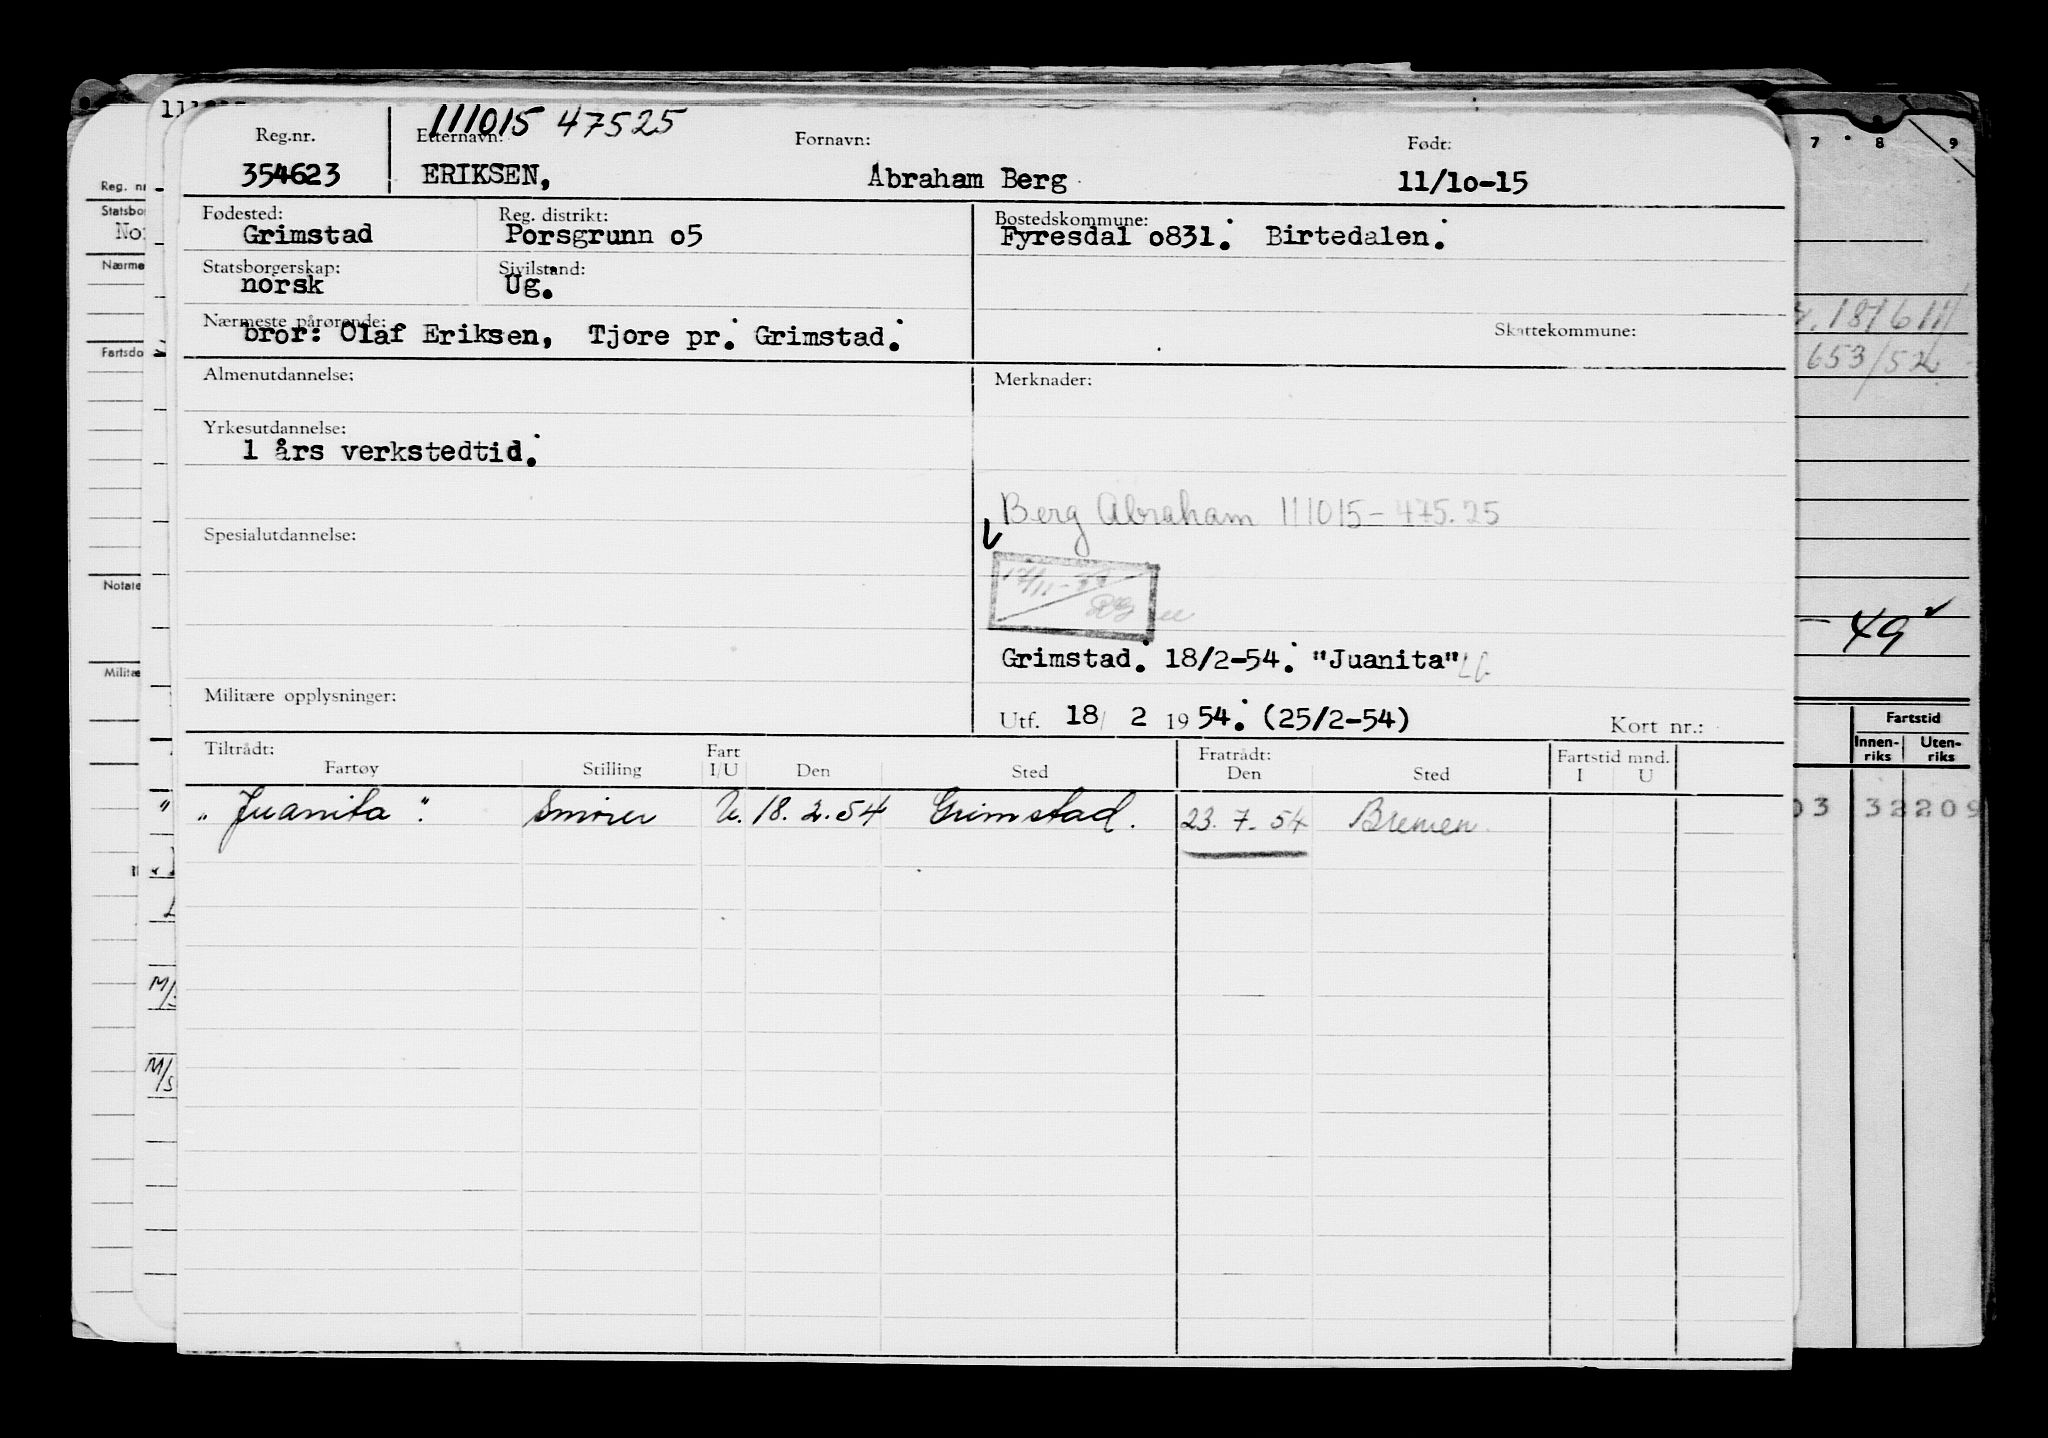 111015 47525
Reg.nr. Etternavn: Fornavn: Født:
354623 ERIKSEN, Abraham Berg 11/10-15
Fødested: Reg. distrikt: Bostedskommune:
Grimstad Porsgrunn o5 Fyresdal o831. Birtedalen.
Statsborgerskap: Sivilstand:
norsk Ug.
Nærmeste pårørende: Skattekommune:
bror: Olaf Eriksen, Tjore pr. Grimstad.
Almenutdannelse: Merknader:
Yrkesutdannelse:
1 års verkstedtid.
Berg Abraham 111015-475.25
Spesialutdannelse:
Grimstad. 18/2-54. "Juanita"
Militære opplysninger:
Utf. 18/ 2 1954. (25/2-54) Kort nr.:
Tiltrådt: Fart Fratrådt: Fartstid mnd.
Fartøy Stilling I/U Den Sted Den Sted I U
"Juanita". Smører U. 18.2.54 Grimstad. 23.7.54 Bremen.
Reg. nr
Statsbo
No
Nærme
Fartsdo
Notate
Militæ
M/
M/s
7 8 9
653/52
- 49
Fartstid
Innen-riks Uten-riks
03 32209